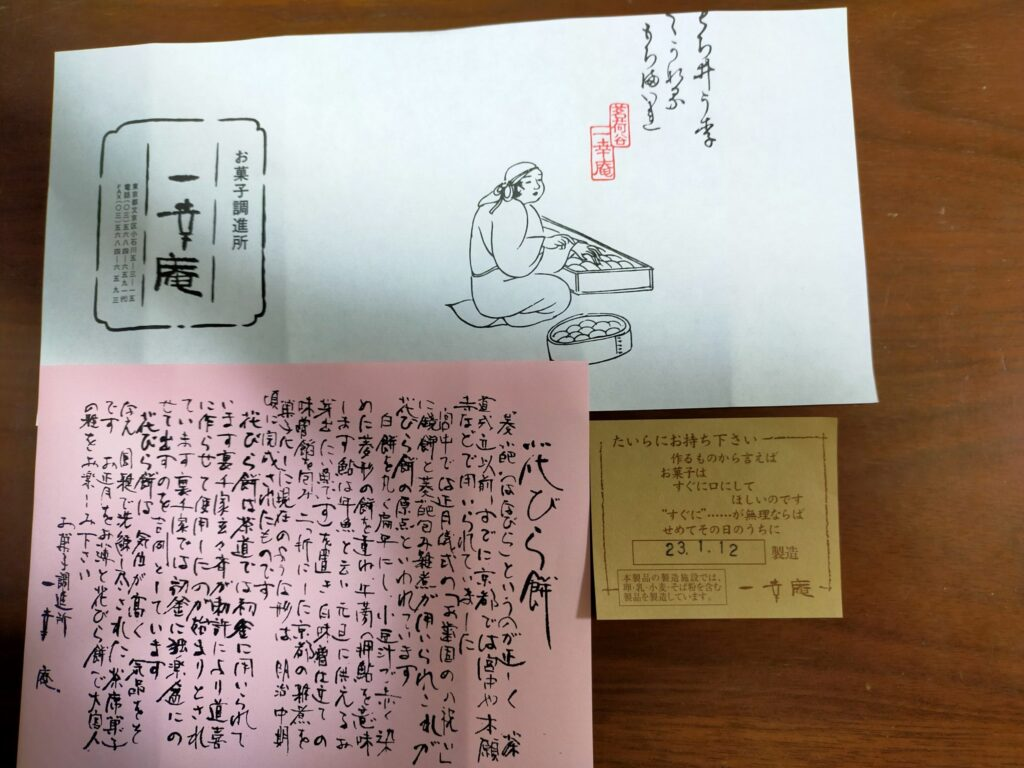 茗荷谷
一幸庵
お菓子調進所
一幸庵
東京都文京区小石川五ー三ー一五
電話(〇三)五六八四ー六五九一(代)
FAX(〇三)五六八四ー六五九三
花びら餅
菱葩(はなびら)というのが正しく 茶
道成立以前すでに京都では宮中や本願
寺などで用いられていました
宮中では正月儀式の
に鏡餅と菱葩包み雑煮が用いられ、これが
花びら餅の原点といわれています
白餅を丸く扁平にし小豆汁で赤く染
めた菱形の餅を重ね 牛蒡(押鮎を意味
します 鮎は年魚と云い 元旦に供えるお
魚です)を置き 白味噌仕立ての
味噌餡を包み二つ折にした京都の雑煮を
菓子化した現在のような形は 明治中期
頃に完成されたものです
花びら餅は茶道では初釜に用いられて
います裏千家玄々斎が勅許により道喜
に作らせて使用したのが始まりとされ
ています 裏千家では初釜に独楽盆にの
せて出すのを吉例としています
花びら餅は 気位が高く 気品をそ
なえ 洗練し された茶席菓子
です お正月をお薄と花びら餅で大宮人
の雅をお楽しみ下さい
お菓子調進所
一幸庵
たいらにお持ち下さい
作るものから言えば
お菓子は
すぐに口にして
ほしいのです
"すぐに"……が無理ならば
せめてその日のうちに
23.1.12 製造
本製品の製造施設では、
卵・乳・小麦・そば粉を含む
製品を製造しています。
一幸庵